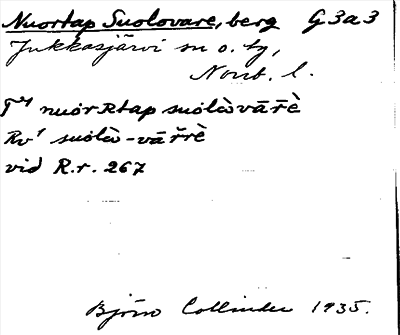 Nuortap Suolovare, berg G 3a3
Jukkasjärvi sn o. tg,
Norrb. l.
T⁴ nuorRtap suolàvāřè
Rv¹ suolà-vāřrè
vid R.r. 267
Björn Collinder 1935.